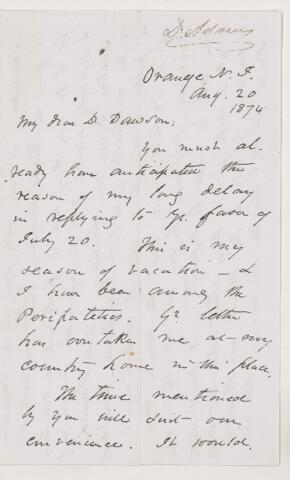 Dr Adams
Orange N. J.
Aug. 20
1874
My dear Dr. Dawson,
You must al-
ready have anticipated the
reason of my long delay
in replying to Yr. favor of
July 20. This is my
season of vacation - &
I have been among the
Peripatetics. Yr. letter
has overtaken me at my
country home in this place.
The time mentioned
by you will suit our
convenience. It would